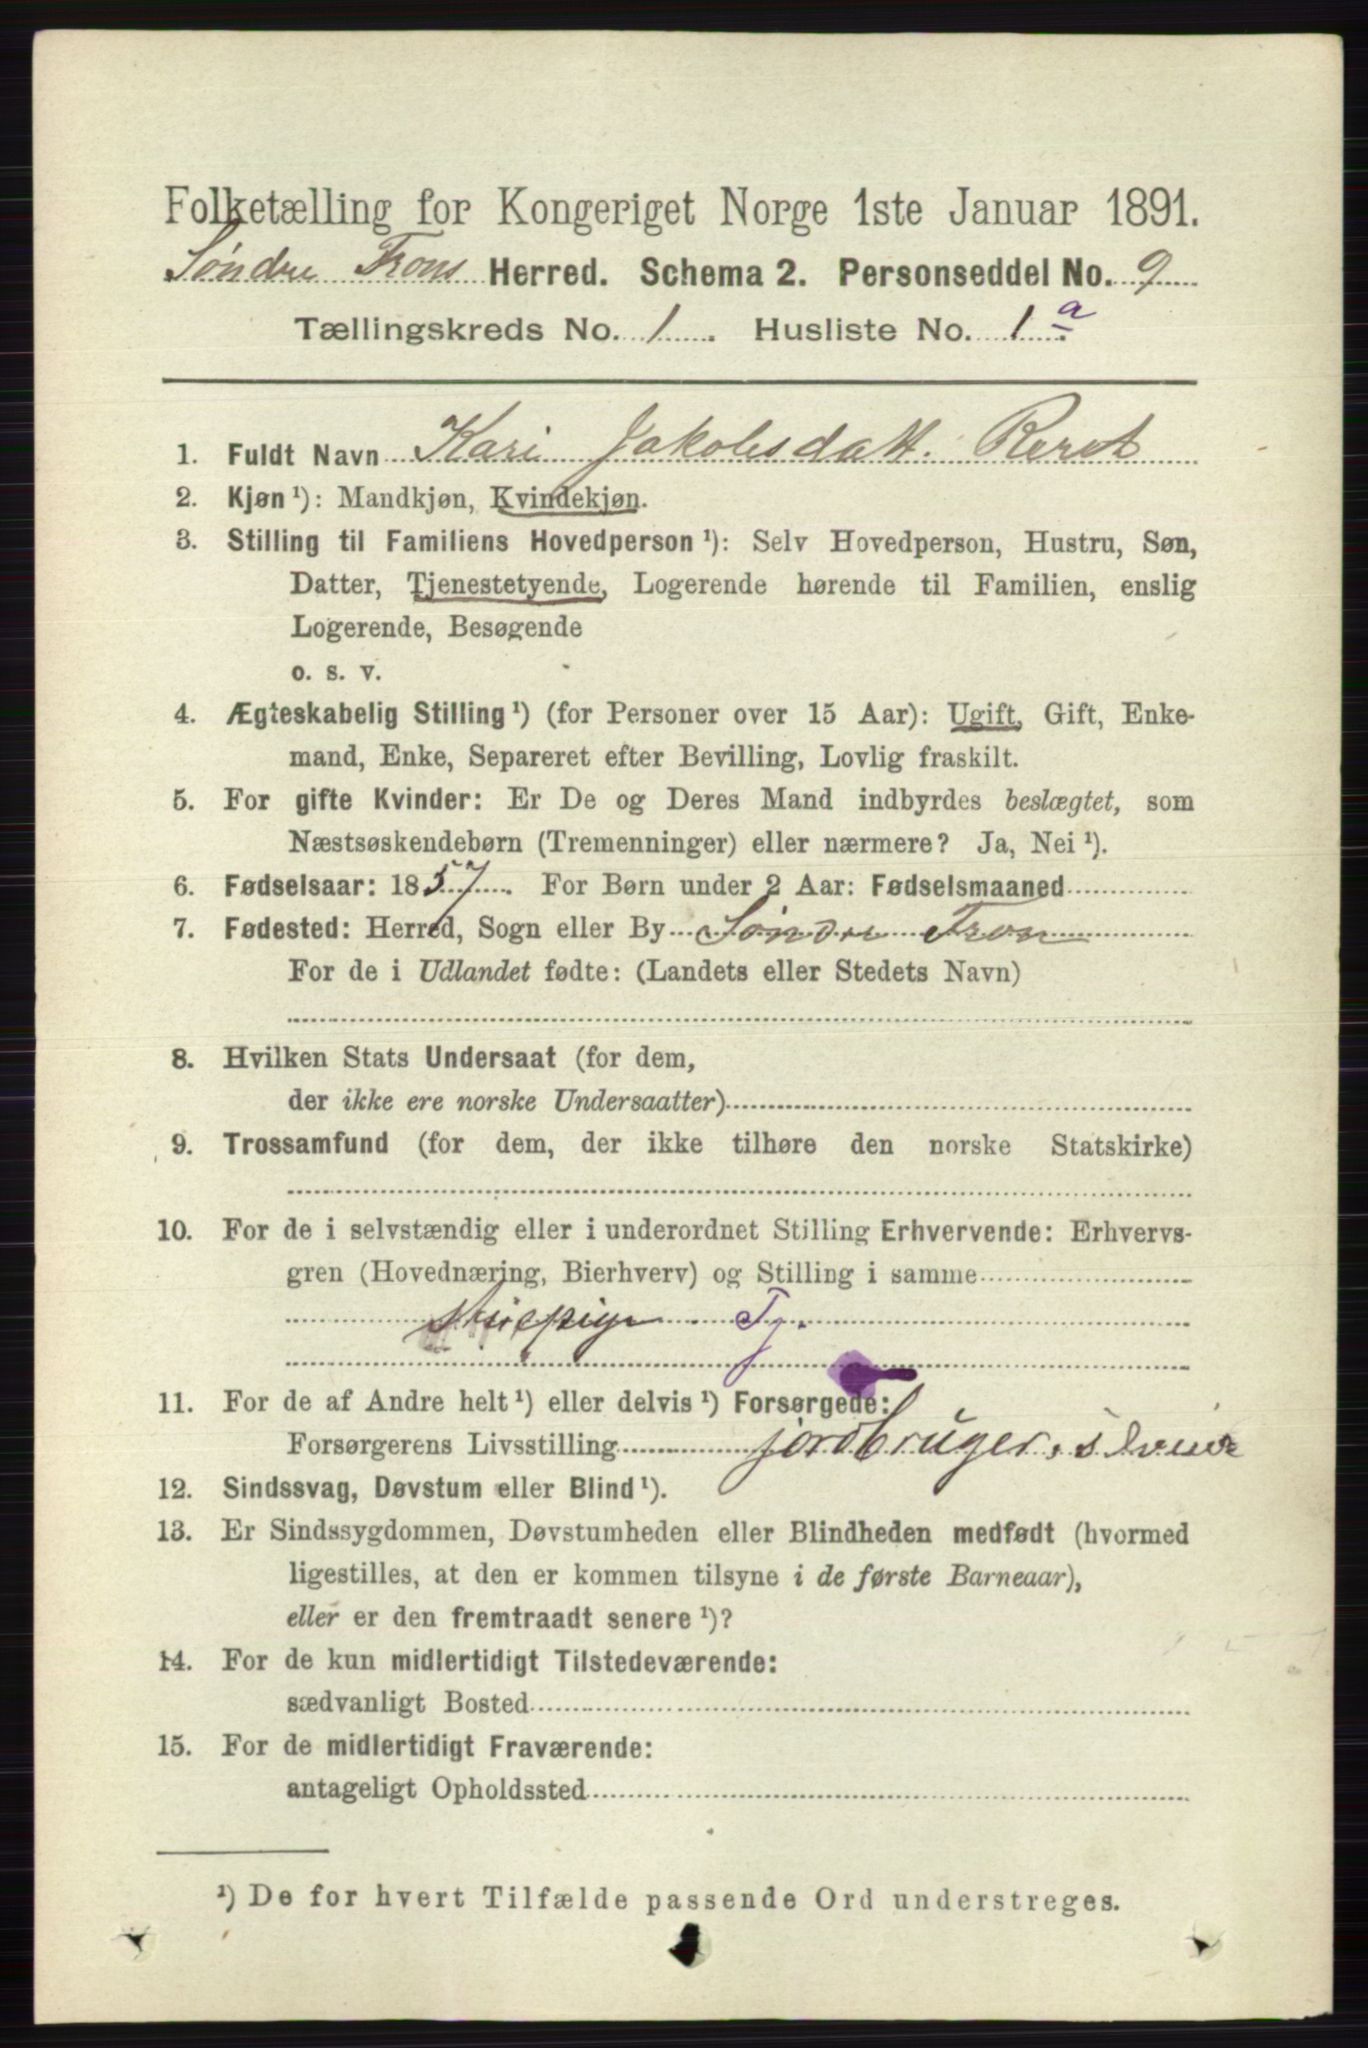 Folketælling for Kongeriget Norge 1ste Januar 1891.
Søndre Frons Herred. Schema 2. Personseddel No. 9
Tællingskreds No. 1. Husliste No. 1 a
1. Fuldt Navn Kari Jakobsdatt.
2. Kjøn ¹): Mandkjøn, Kvindekjøn.
3. Stilling til Familiens Hovedperson ¹): Selv Hovedperson, Hustru, Søn,
Datter, Tjenestetyende, Logerende hørende til Familien, enslig
Logerende, Besøgende
o. s. v.
4. Ægteskabelig Stilling ¹) (for Personer over 15 Aar): Ugift, Gift, Enke-
mand, Enke, Separeret efter Bevilling, Lovlig fraskilt.
5. For gifte Kvinder: Er De og Deres Mand indbyrdes beslægtet, som
Næstsøskendebørn (Tremenninger) eller nærmere? Ja, Nei ¹).
6. Fødselsaar: 1857. For Børn under 2 Aar: Fødselsmaaned
7. Fødested: Herred, Sogn eller By Søndre Fron
For de i Udlandet fødte: (Landets eller Stedets Navn)
8. Hvilken Stats Undersaat (for dem,
der ikke ere norske Undersaatter)
9. Trossamfund (for dem, der ikke tilhøre den norske Statskirke)
10. For de i selvstændig eller i underordnet Stilling Erhvervende: Erhvervs-
gren (Hovednæring, Bierhverv) og Stilling i samme
Tj.
11. For de af Andre helt ¹) eller delvis ¹) Forsørgede:
Forsørgerens Livsstilling jordbruger,
12. Sindssvag, Døvstum eller Blind ¹).
13. Er Sindssygdommen, Døvstumheden eller Blindheden medfødt (hvormed
ligestilles, at den er kommen tilsyne i de første Barneaar),
eller er den fremtraadt senere ¹)?
14. For de kun midlertidigt Tilstedeværende:
sædvanligt Bosted
15. For de midlertidigt Fraværende:
antageligt Opholdssted
¹) De for hvert Tilfælde passende Ord understreges.